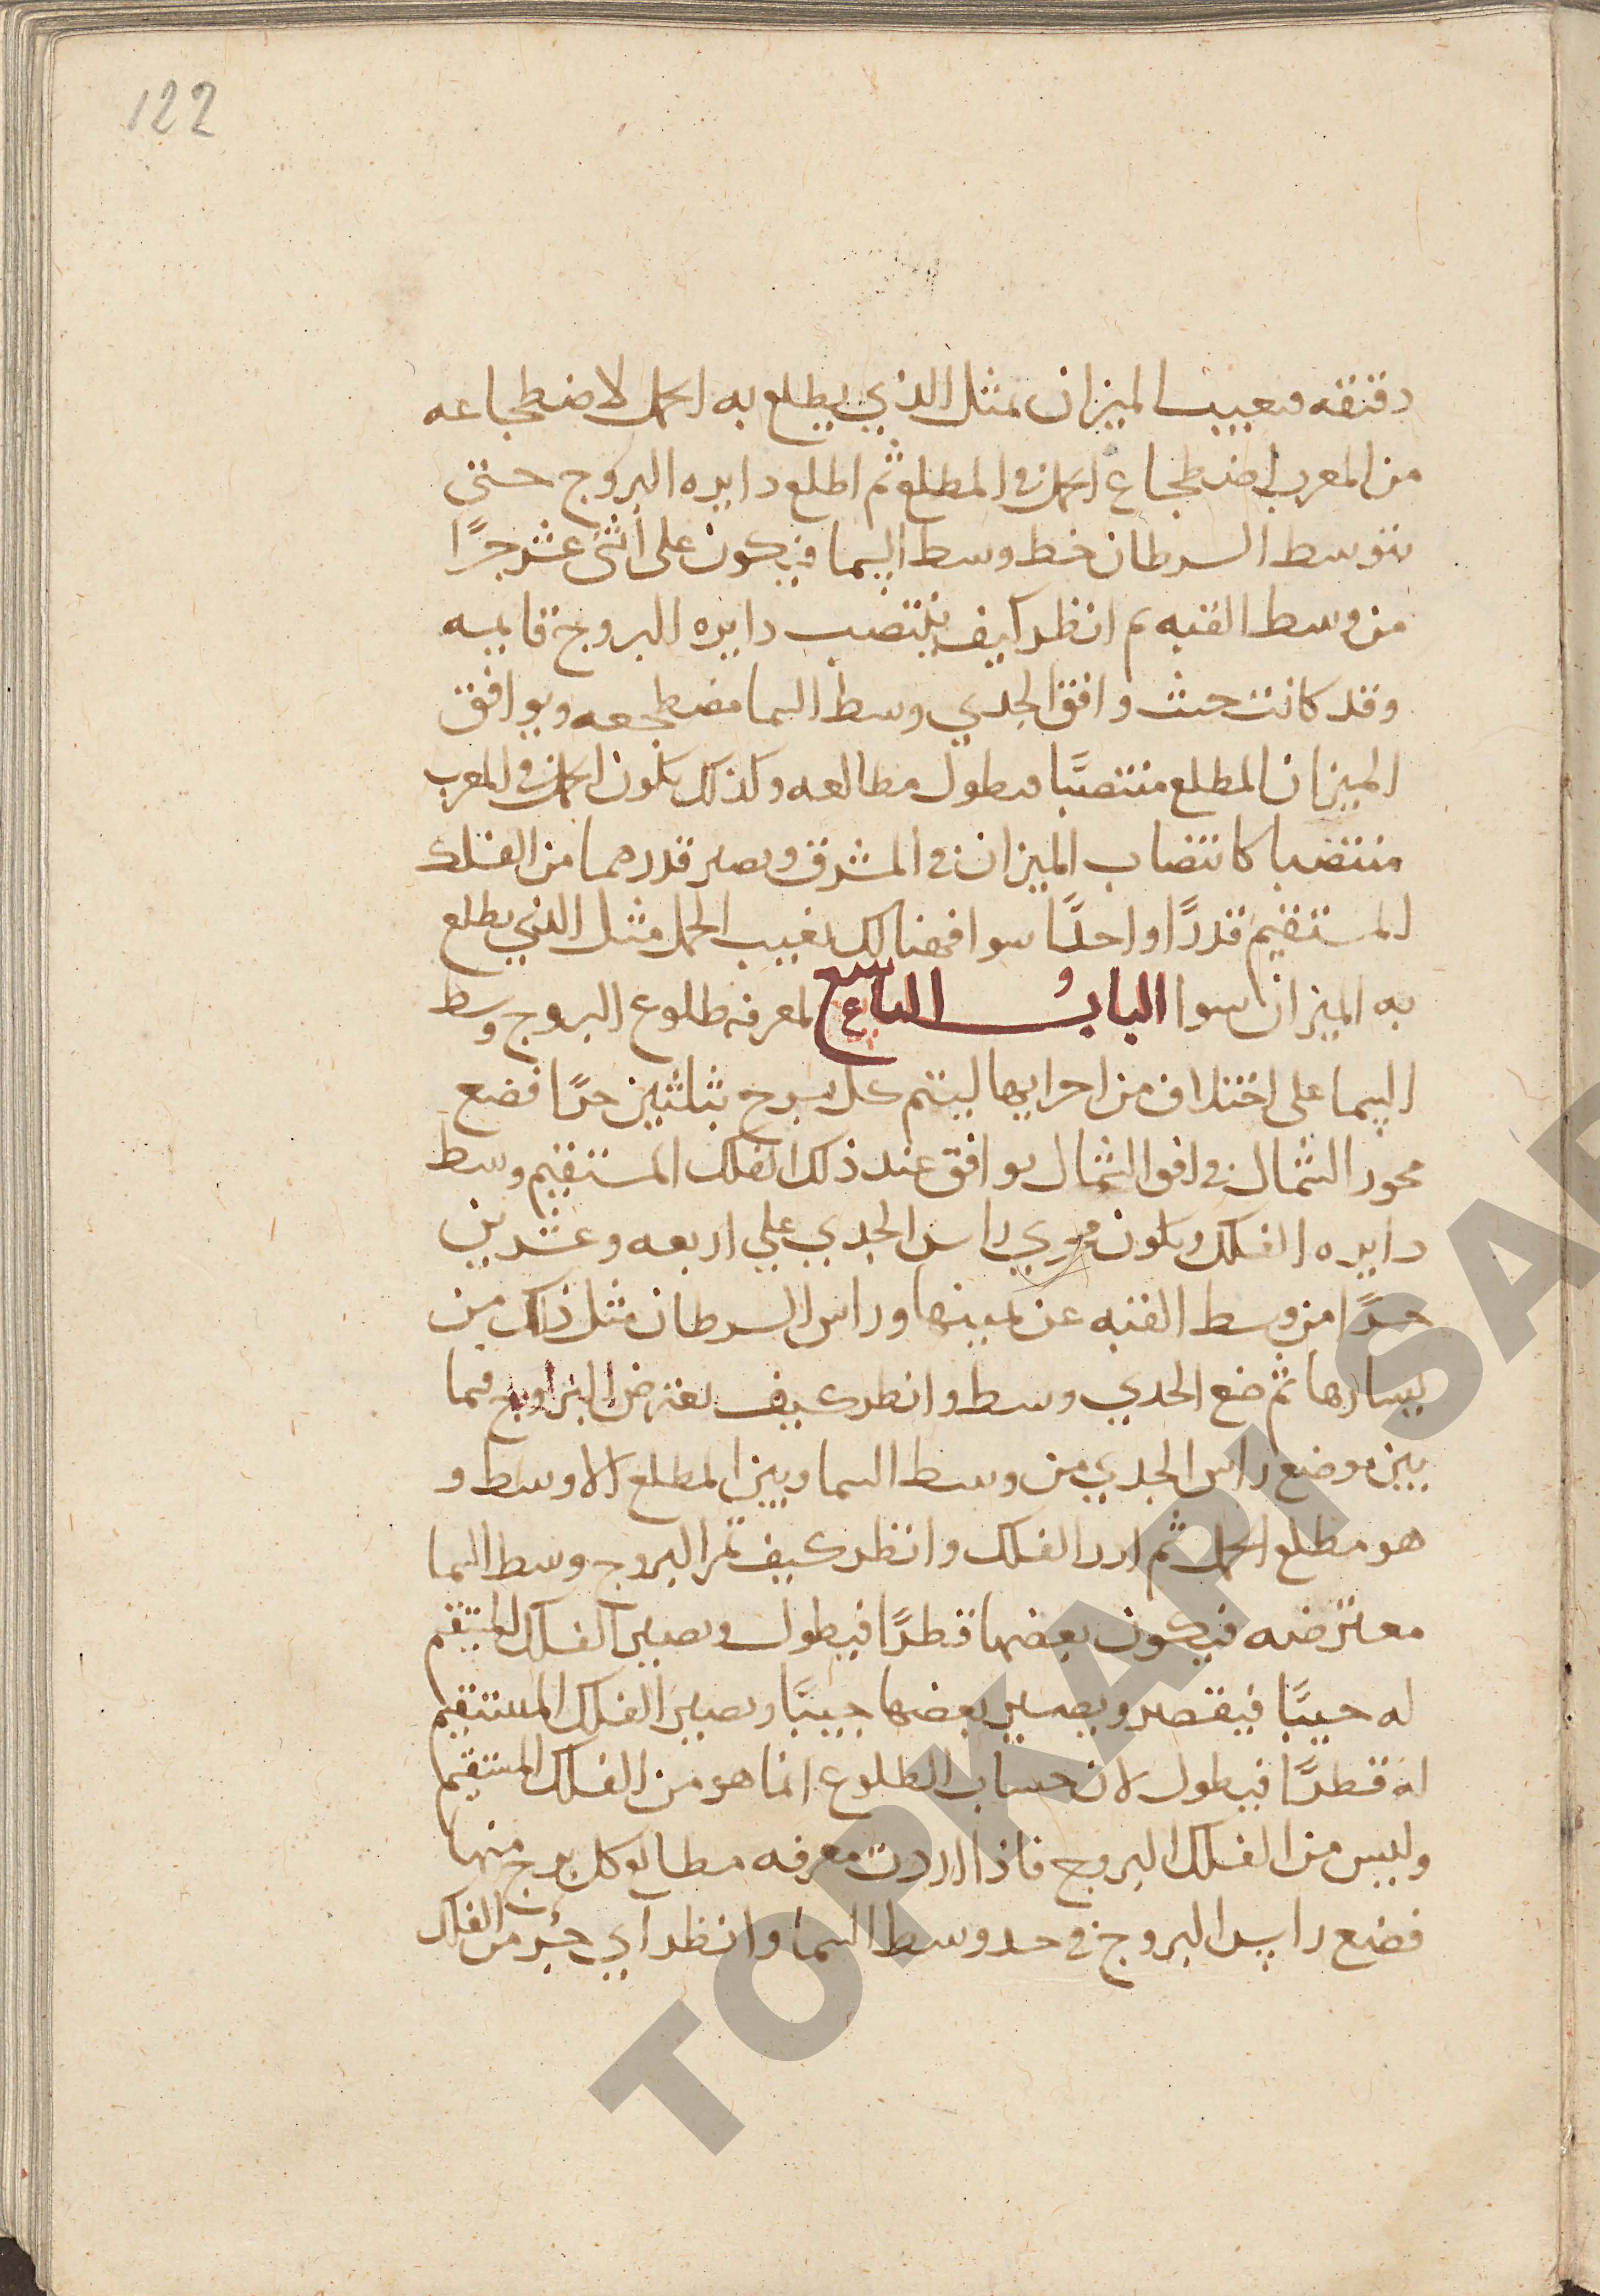 122
دقيقه فيغيب الميزان بمثل الذي يطلع به الحمل لاضطجاعه
من المغرب اضطجاع الحمل في المطلع ثم اطلع دايره البروج حتى
يتوسط السرطان خط وسط السما فيكون على اثنى عشر جزًا
من وسط القبه ثم انظر كيف ينتصب دايره البروج قايمه
وقد كانت حيث وافق الجدي وسط السما مضطجعه ويوافق
الميزان المطلع منتصبًا فيطول مطالعه وكذلك يكون الحمل في المغرب
منتصبا كانتصاب الميزان في المشرق ويصير قدرهما من الفلك
المستقيم قدرًا واحدًا سوا فهنالك يغيب الحمل مثل الذي يطلع
به الميزان سوا البابُ التاسع لمعرفه طلوع البروج وسط
السما على اختلاف من اجرايها ليتم كل برج بثلثين جزًا فضع
محور الشمال في افق الشمال يوافق عند ذلك الفلك المستقيم وسط
دايره الفلك ويكون مجري راس الجدي علي اربعه وعشرين
جزًا من وسط القبه عن يمينها وراس السرطان مثل ذلك من
يسارها ثم ضع الجدي وسط وانظر كيف يعترض البراوج فيما
بين موضع راس الجدي من وسط السما وبين المطلع الاوسط و
هو مطلع الحمل ثم ادر الفلك وانظر كيف تمر البروج وسط السما
معترضه فيكون بعضها قطرًا فيطول ويصير الفلك المستقيم
له جيبًا فيقصر ويصير بعضها جيبًا ويصير الفلك المستقيم
له قطرًا فيطول لان حساب الطلوع انما هو من الفلك المستقيم
وليس من الفلك البروج فاذا اردت معرفه مطالع كل برج منها
فضع راس البروج في حد وسط السما وانظر اي جزُ من الفلك
TOPKAPI SAR